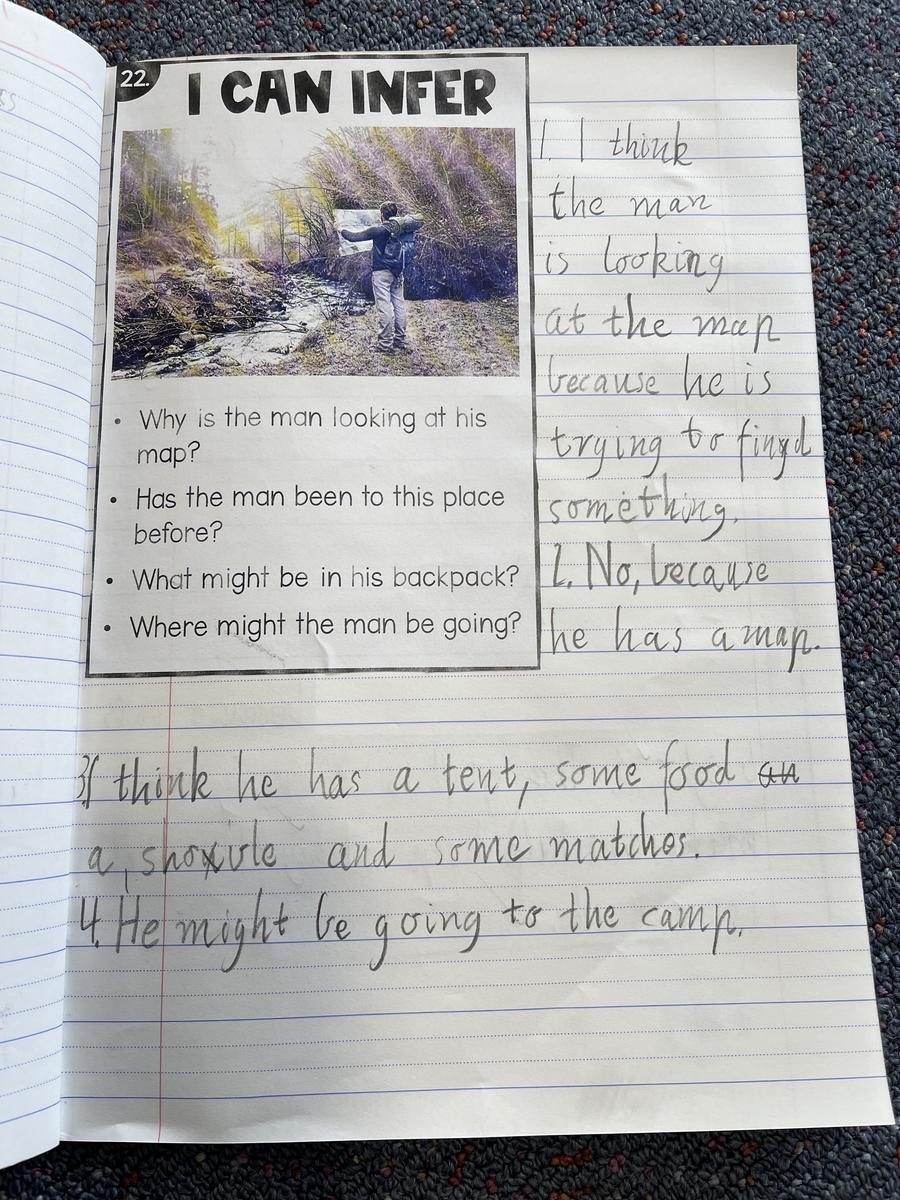 22.
I CAN INFER
• Why is the man looking at his
map?
• Has the man been to this place
before?
• What might be in his backpack?
• Where might the man be going?
1. I think
the man
is looking
at the map
because he is
trying to find
something.
2. No, because
he has a map.
3. I think he has a tent, some food
a and some matches.
4. He might be going to the camp.